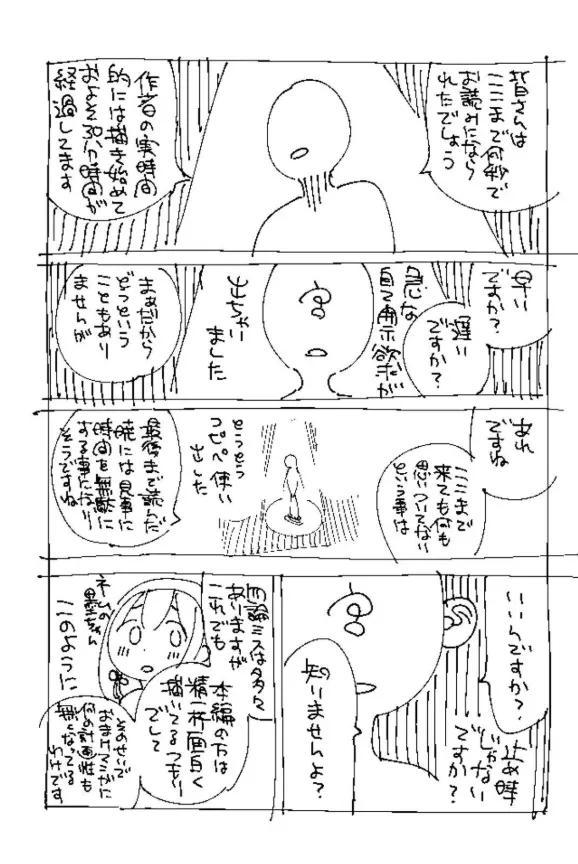 皆さんは
ここまで何秒で
お読みになら
れたでしょう
作者の実時間
的には描き始めて
およそ30分時間が
経過してます
早い
ですか?
遅い
ですか?
急な
自己顕示欲求が
出ちゃい
ました
まぁだから
どうという
こともあり
ませんが
あれ
ですね
ここまで
来ても何も
思いついてない
という事は
とうとう
コピペ使い
出した
最後まで読んだ
暁には見事に
時間を無駄に
する事になり
そうですね
いいんですか?
止め時
じゃない
ですか?
知りませんよ?
勿論ミスは多々
ありますが
これでも
本編の方は
精一杯面白く
描いてるつもり
でして
ネムの
墨ちゃん
このように
そのせいで
おまけマンガに
何の計画性も
無くなってる
わけです